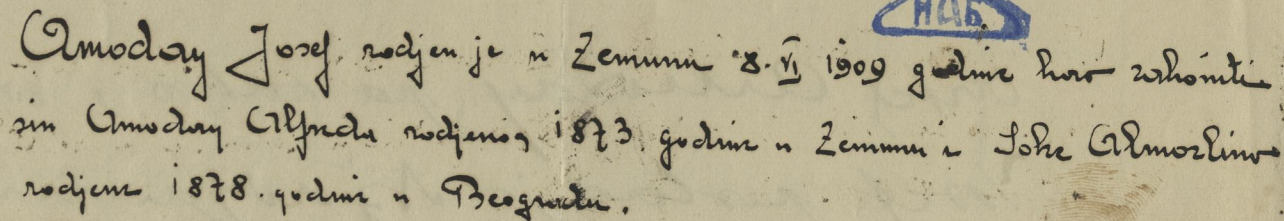 НАБ
Amodaj Josef rodjen je u Zemunu 8. VI 1909 godine kao zakoniti
sin Amodaj Alfreda rodjenog 1873. godine u Zemunu i Soke
rodjene 1878. godine u Beogradu.